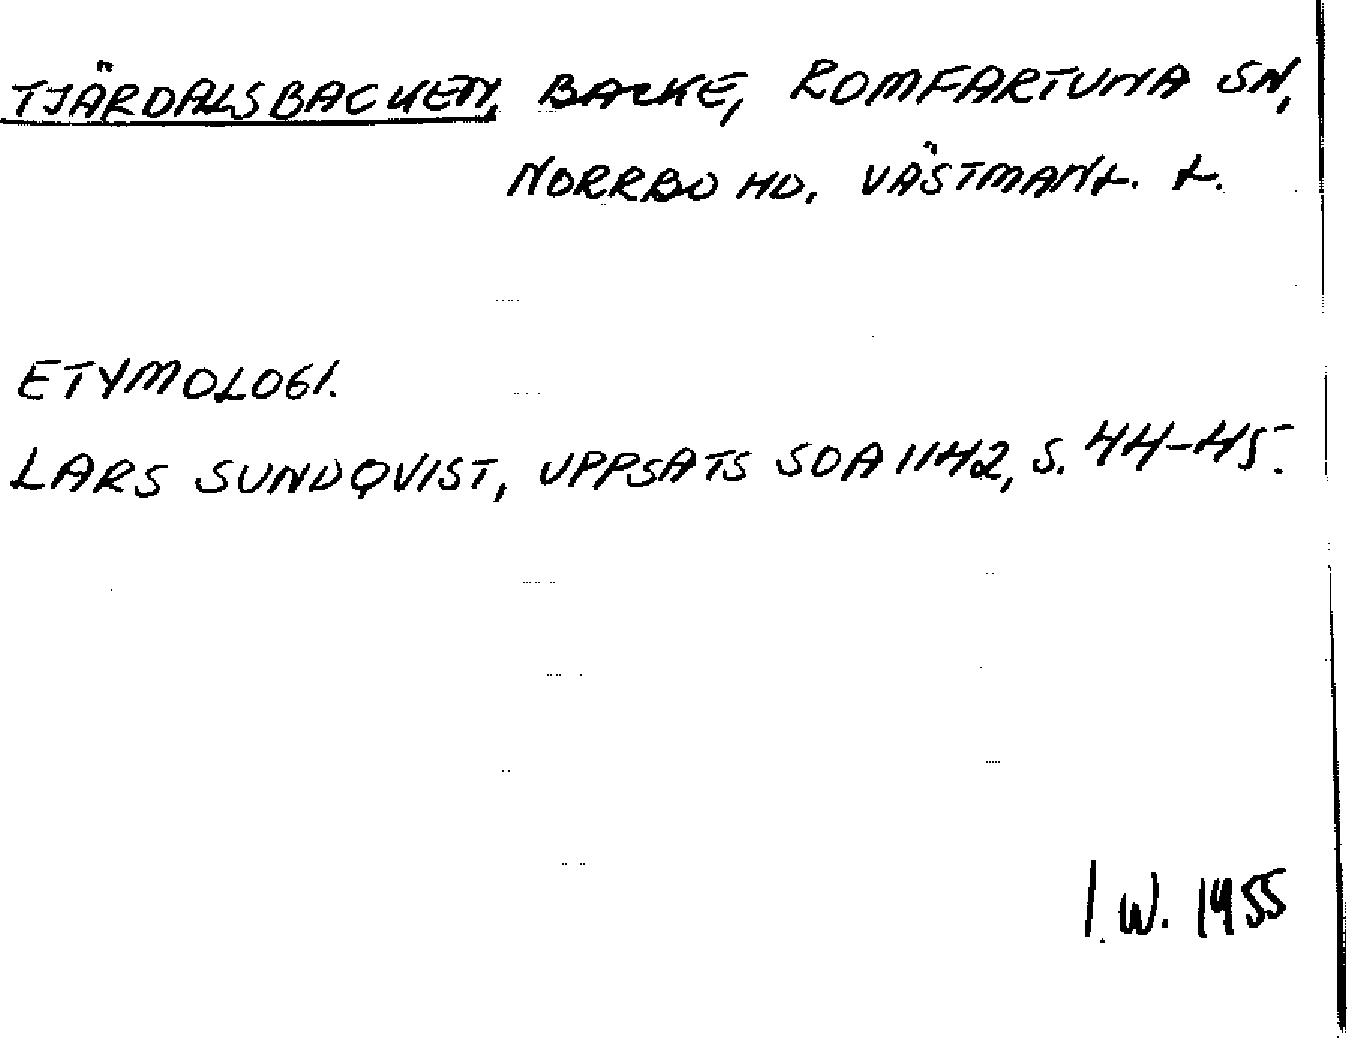 TJÄRDALSBACKEN, BACKE, ROMFARTUNA SN,
NORRBO HD, VÄSTMANL. L.
ETYMOLOGI.
LARS SUNDQVIST, UPPSATS SOA 1142, S. 44-45.
I.W. 1955